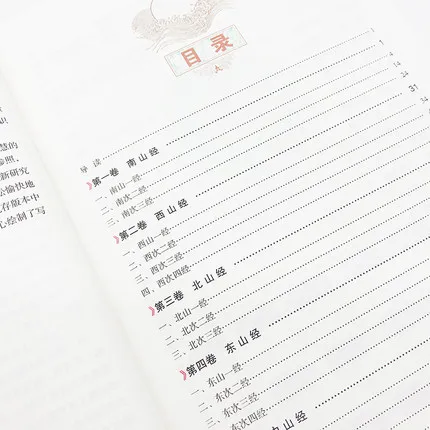 识
慧的
参照,
新研究
松愉快地
存版本中
心绘制了写
目录
导读 1
第一卷 南山经
一、南山一经
二、南次二经
三、南次三经
第二卷 西山经 31
一、西山一经
二、西次二经
三、西次三经
四、西次四经
第三卷 北山经
一、北山一经
二、北次二经
三、北次三经
第四卷 东山经
一、东山一经
二、东次二经
三、东次三经
四、东次四经
中山经